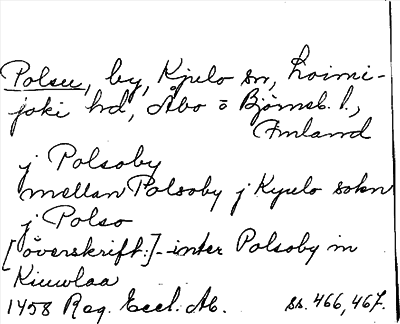 Polsu, by, Kjulo sn, Loimi-
joki hd, Åbo o Bjömeb. l.,
Finland
j Polsoby
mellan Polsoby j Kyulo sokn
j Polso
[överskrift:] - inter Polsoby in
Kiuwlaa
1458 Reg. Eccl. Ab. ss. 466, 467.